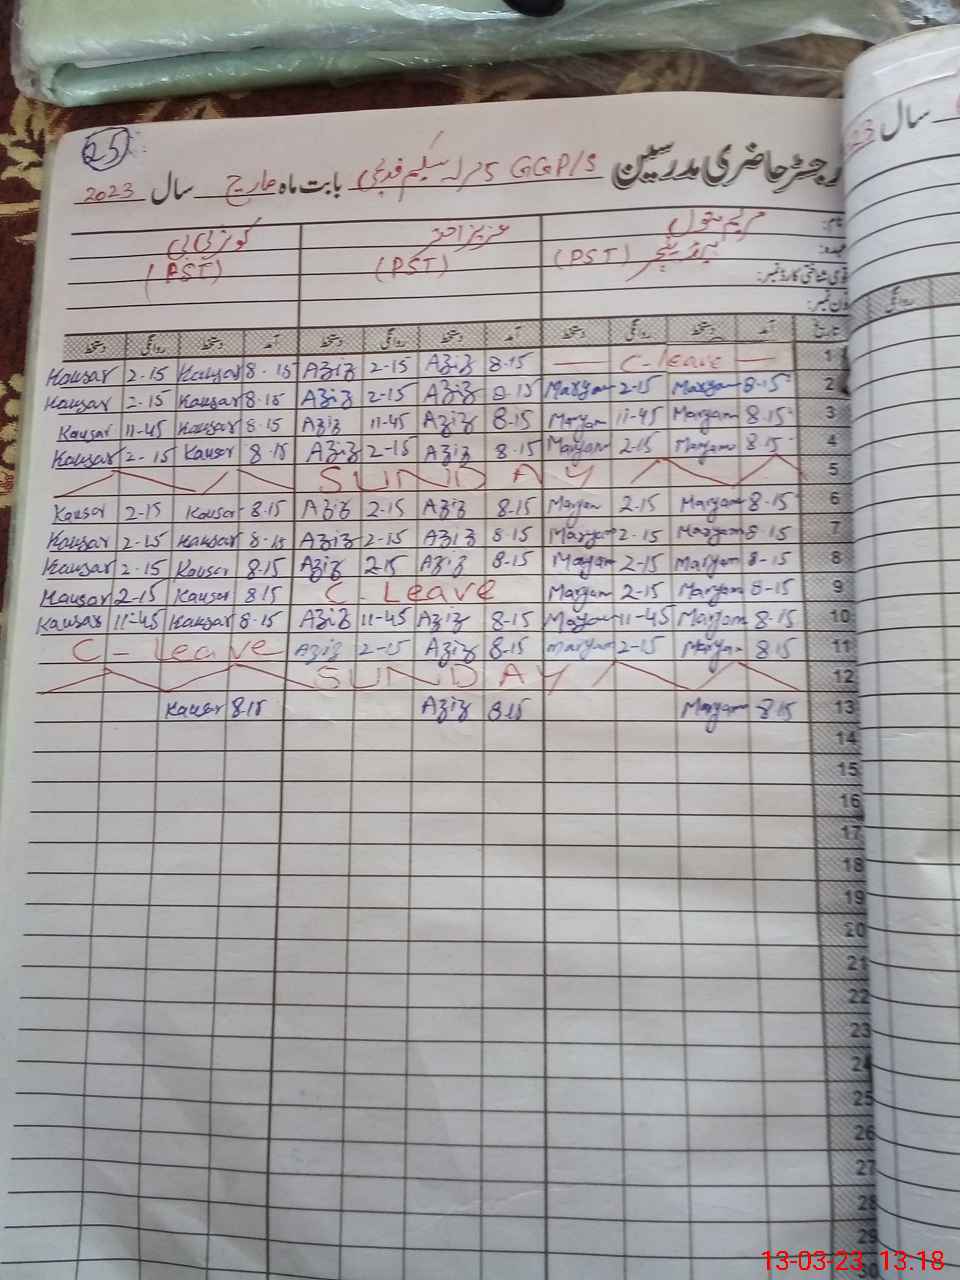 25
رجسٹر حاضری مدرسین GGP/S 5 مرلہ سکیم بابت ماہ مارچ سال 2023
23 سال
نام: مریم بتول عزیز احمد کوثر بی بی
عہدہ: (PST) (PST) (PST)
قومی شناختی کارڈ نمبر:
فون نمبر:
تاریخ آمد دستخط روانگی دستخط آمد دستخط روانگی دستخط آمد دستخط روانگی دستخط
روانگی
Kausar 2-15 Kausar 8-15 Aziz 2-15 Aziz 8-15 C-leave 1
Kausar 2-15 Kausar 8-15 Aziz 2-15 Aziz 8-15 Maryam 2-15 Maryam 8-15 2
Kausar 11-45 Kausar 8-15 Aziz 11-45 Aziz 8-15 Maryam 11-45 Maryam 8-15 3
Kausar 2-15 Kauser 8-15 Aziz 2-15 Aziz 8-15 Maryam 2-15 Maryam 8-15 4
SUNDAY 5
Kausar 2-15 Kausar 8-15 Aziz 2-15 Aziz 8-15 Maryam 2-15 Maryam 8-15 6
Kausar 2-15 Kausar 8-15 Aziz 2-15 Aziz 8-15 Maryam 2-15 Maryam 8-15 7
Kausar 2-15 Kauser 8-15 Aziz 2-15 Aziz 8-15 Maryam 2-15 Maryam 8-15 8
Kausar 2-15 Kauser 8-15 C-Leave Maryam 2-15 Maryam 8-15 9
Kausar 11-45 Kausar 8-15 Aziz 11-45 Aziz 8-15 Maryam 11-45 Maryam 8-15 10
C-Leave Aziz 2-15 Aziz 8-15 Maryam 2-15 Maryam 8-15 11
SUNDAY 12
Kauser 8-15 Aziz 8-15 Maryam 8-15 13
14
15
16
17
18
19
20
21
22
23
24
25
26
27
28
29
30
13-03-23 13.18